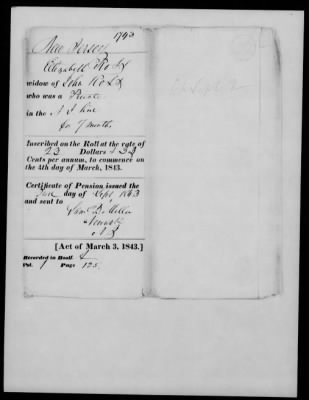 1793
New Jersey
Elizabeth Ross
widow of John Ross
who was a Private
in the N J line
for 9 months
Inscribed on the Roll at the rate of
23 Dollars 33
Cents per annum, to commence on
the 4th day of March, 1843.
Certificate of Pension issued the
day of Sept 1843
and sent to
Sam'l Miller
N J
[Act of March 3, 1843.]
Recorded in Book A
Vol. 1 Page 125.